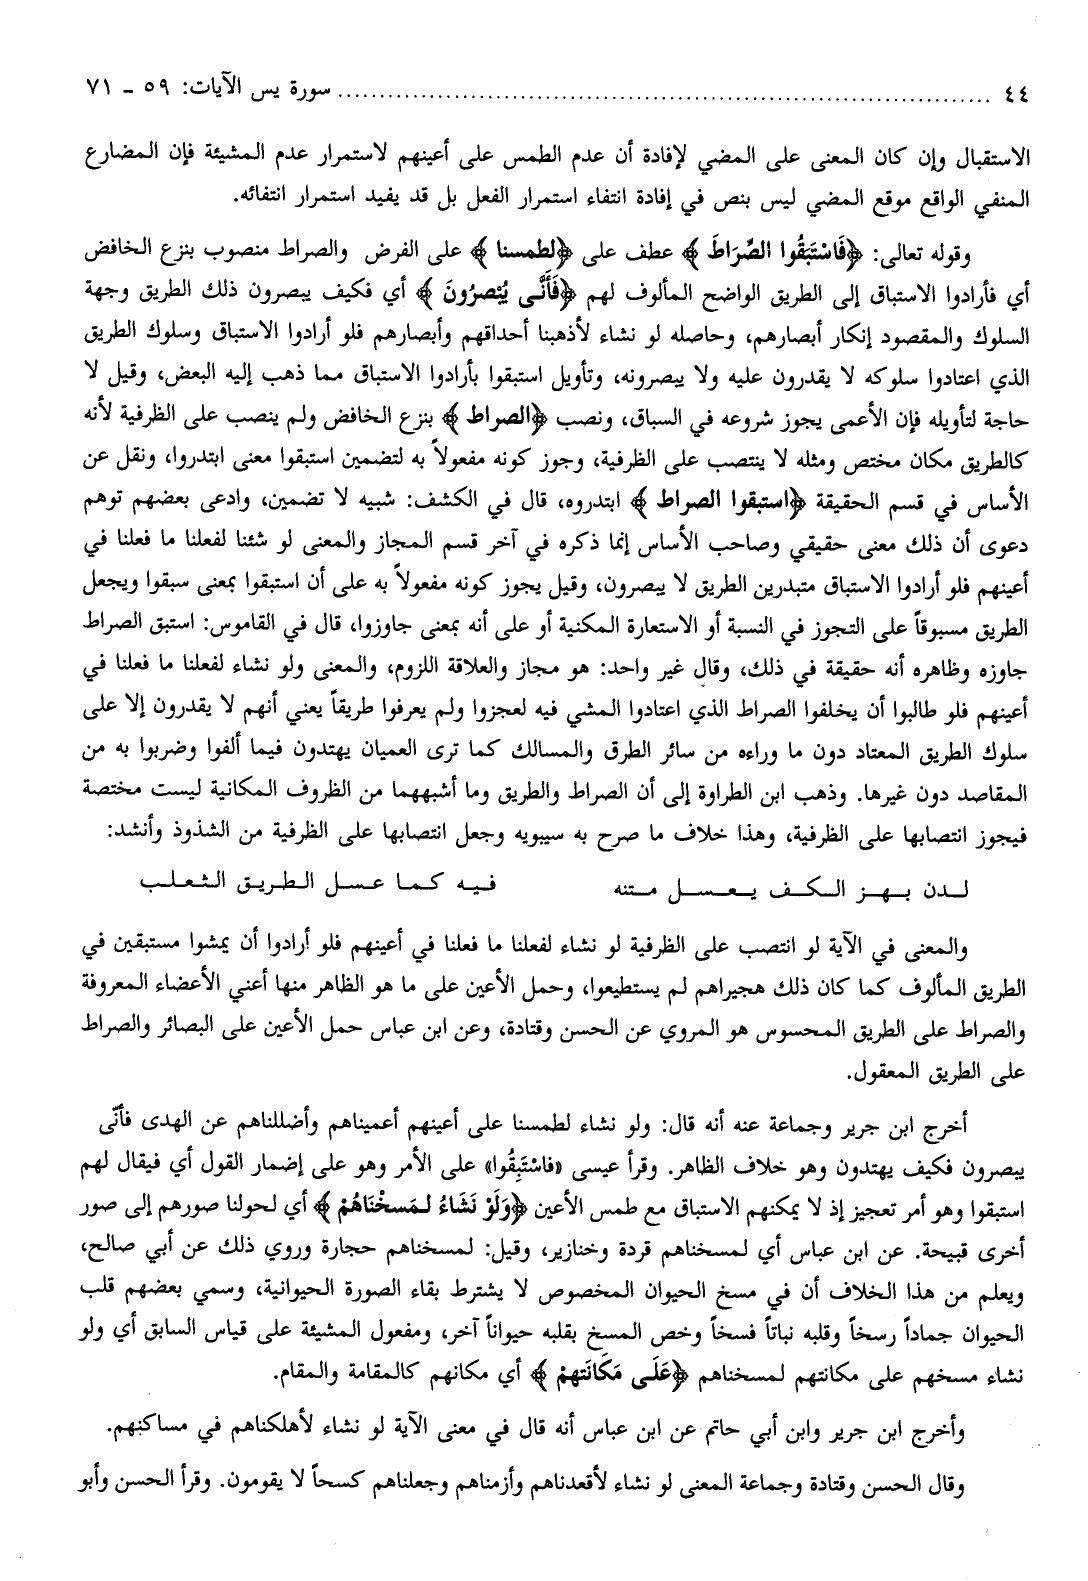 ٤٤ ........................................................ سورة يس الآيات: ٥٩ - ٧١
الاستقبال وإن كان المعنى على المضي لإفادة أن عدم الطمس على أعينهم لاستمرار عدم المشيئة فإن المضارع
المنفي الواقع موقع المضي ليس بنص في إفادة انتفاء استمرار الفعل بل قد يفيد استمرار انتفائه.
وقوله تعالى: ﴿فَاسْتَبَقُوا الصِّرَاطَ﴾ عطف على ﴿لطمسنا﴾ على الفرض والصراط منصوب بنزع الخافض
أي فأرادوا الاستباق إلى الطريق الواضح المألوف لهم ﴿فَأَنَّى يُبْصِرُونَ﴾ أي فكيف يبصرون ذلك الطريق وجهة
السلوك والمقصود إنكار أبصارهم، وحاصله لو نشاء لأذهبنا أحداقهم وأبصارهم فلو أرادوا الاستباق وسلوك الطريق
الذي اعتادوا سلوكه لا يقدرون عليه ولا يبصرونه، وتأويل استبقوا بأرادوا الاستباق مما ذهب إليه البعض، وقيل لا
حاجة لتأويله فإن الأعمى يجوز شروعه في السباق، ونصب ﴿الصراط﴾ بنزع الخافض ولم ينصب على الظرفية لأنه
كالطريق مكان مختص ومثله لا ينتصب على الظرفية، وجوز كونه مفعولاً به لتضمين استبقوا معنى ابتدروا، ونقل عن
الأساس في قسم الحقيقة ﴿استبقوا الصراط﴾ ابتدروه، قال في الكشف: شبيه لا تضمين، وادعى بعضهم توهم
دعوى أن ذلك معنى حقيقي وصاحب الأساس إنما ذكره في آخر قسم المجاز والمعنى لو شئنا لفعلنا ما فعلنا في
أعينهم فلو أرادوا الاستباق متبدرين الطريق لا يبصرون، وقيل يجوز كونه مفعولاً به على أن استبقوا بمعنى سبقوا ويجعل
الطريق مسبوقاً على التجوز في النسبة أو الاستعارة المكنية أو على أنه بمعنى جاوزوا، قال في القاموس: استبق الصراط
جاوزه وظاهره أنه حقيقة في ذلك، وقال غير واحد: هو مجاز والعلاقة اللزوم، والمعنى ولو نشاء لفعلنا ما فعلنا في
أعينهم فلو طالبوا أن يخلفوا الصراط الذي اعتادوا المشي فيه لعجزوا ولم يعرفوا طريقاً يعني أنهم لا يقدرون إلا على
سلوك الطريق المعتاد دون ما وراءه من سائر الطرق والمسالك كما ترى العميان يهتدون فيما ألفوا وضربوا به من
المقاصد دون غيرها. وذهب ابن الطراوة إلى أن الصراط والطريق وما أشبههما من الظروف المكانية ليست مختصة
فيجوز انتصابها على الظرفية، وهذا خلاف ما صرح به سيبويه وجعل انتصابها على الظرفية من الشذوذ وأنشد:
لدن بهز الكف يعسل متنه فيه كما عسل الطريق الثعلب
والمعنى في الآية لو انتصب على الظرفية لو نشاء لفعلنا ما فعلنا في أعينهم فلو أرادوا أن يمشوا مستبقين في
الطريق المألوف كما كان ذلك هجيراهم لم يستطيعوا، وحمل الأعين على ما هو الظاهر منها أعني الأعضاء المعروفة
والصراط على الطريق المحسوس هو المروي عن الحسن وقتادة، وعن ابن عباس حمل الأعين على البصائر والصراط
على الطريق المعقول.
أخرج ابن جرير وجماعة عنه أنه قال: ولو نشاء لطمسنا على أعينهم أعميناهم وأضللناهم عن الهدى فأنّى
يبصرون فكيف يهتدون وهو خلاف الظاهر. وقرأ عيسى «فاسْتَبِقُوا» على الأمر وهو على إضمار القول أي فيقال لهم
استبقوا وهو أمر تعجيز إذ لا يمكنهم الاستباق مع طمس الأعين ﴿وَلَوْ نَشَاءُ لَمَسخْنَاهُمْ﴾ أي لحولنا صورهم إلى صور
أخرى قبيحة. عن ابن عباس أي لمسخناهم قردة وخنازير، وقيل: لمسخناهم حجارة وروي ذلك عن أبي صالح،
ويعلم من هذا الخلاف أن في مسخ الحيوان المخصوص لا يشترط بقاء الصورة الحيوانية، وسمي بعضهم قلب
الحيوان جماداً رسخاً وقلبه نباتاً فسخاً وخص المسخ بقلبه حيواناً آخر، ومفعول المشيئة على قياس السابق أي ولو
نشاء مسخهم على مكانتهم لمسخناهم ﴿عَلَى مَكَانَتهِمْ﴾ أي مكانهم كالمقامة والمقام.
وأخرج ابن جرير وابن أبي حاتم عن ابن عباس أنه قال في معنى الآية لو نشاء لأهلكناهم في مساكنهم.
وقال الحسن وقتادة وجماعة المعنى لو نشاء لأقعدناهم وأزمناهم وجعلناهم كسحاً لا يقومون. وقرأ الحسن وأبو